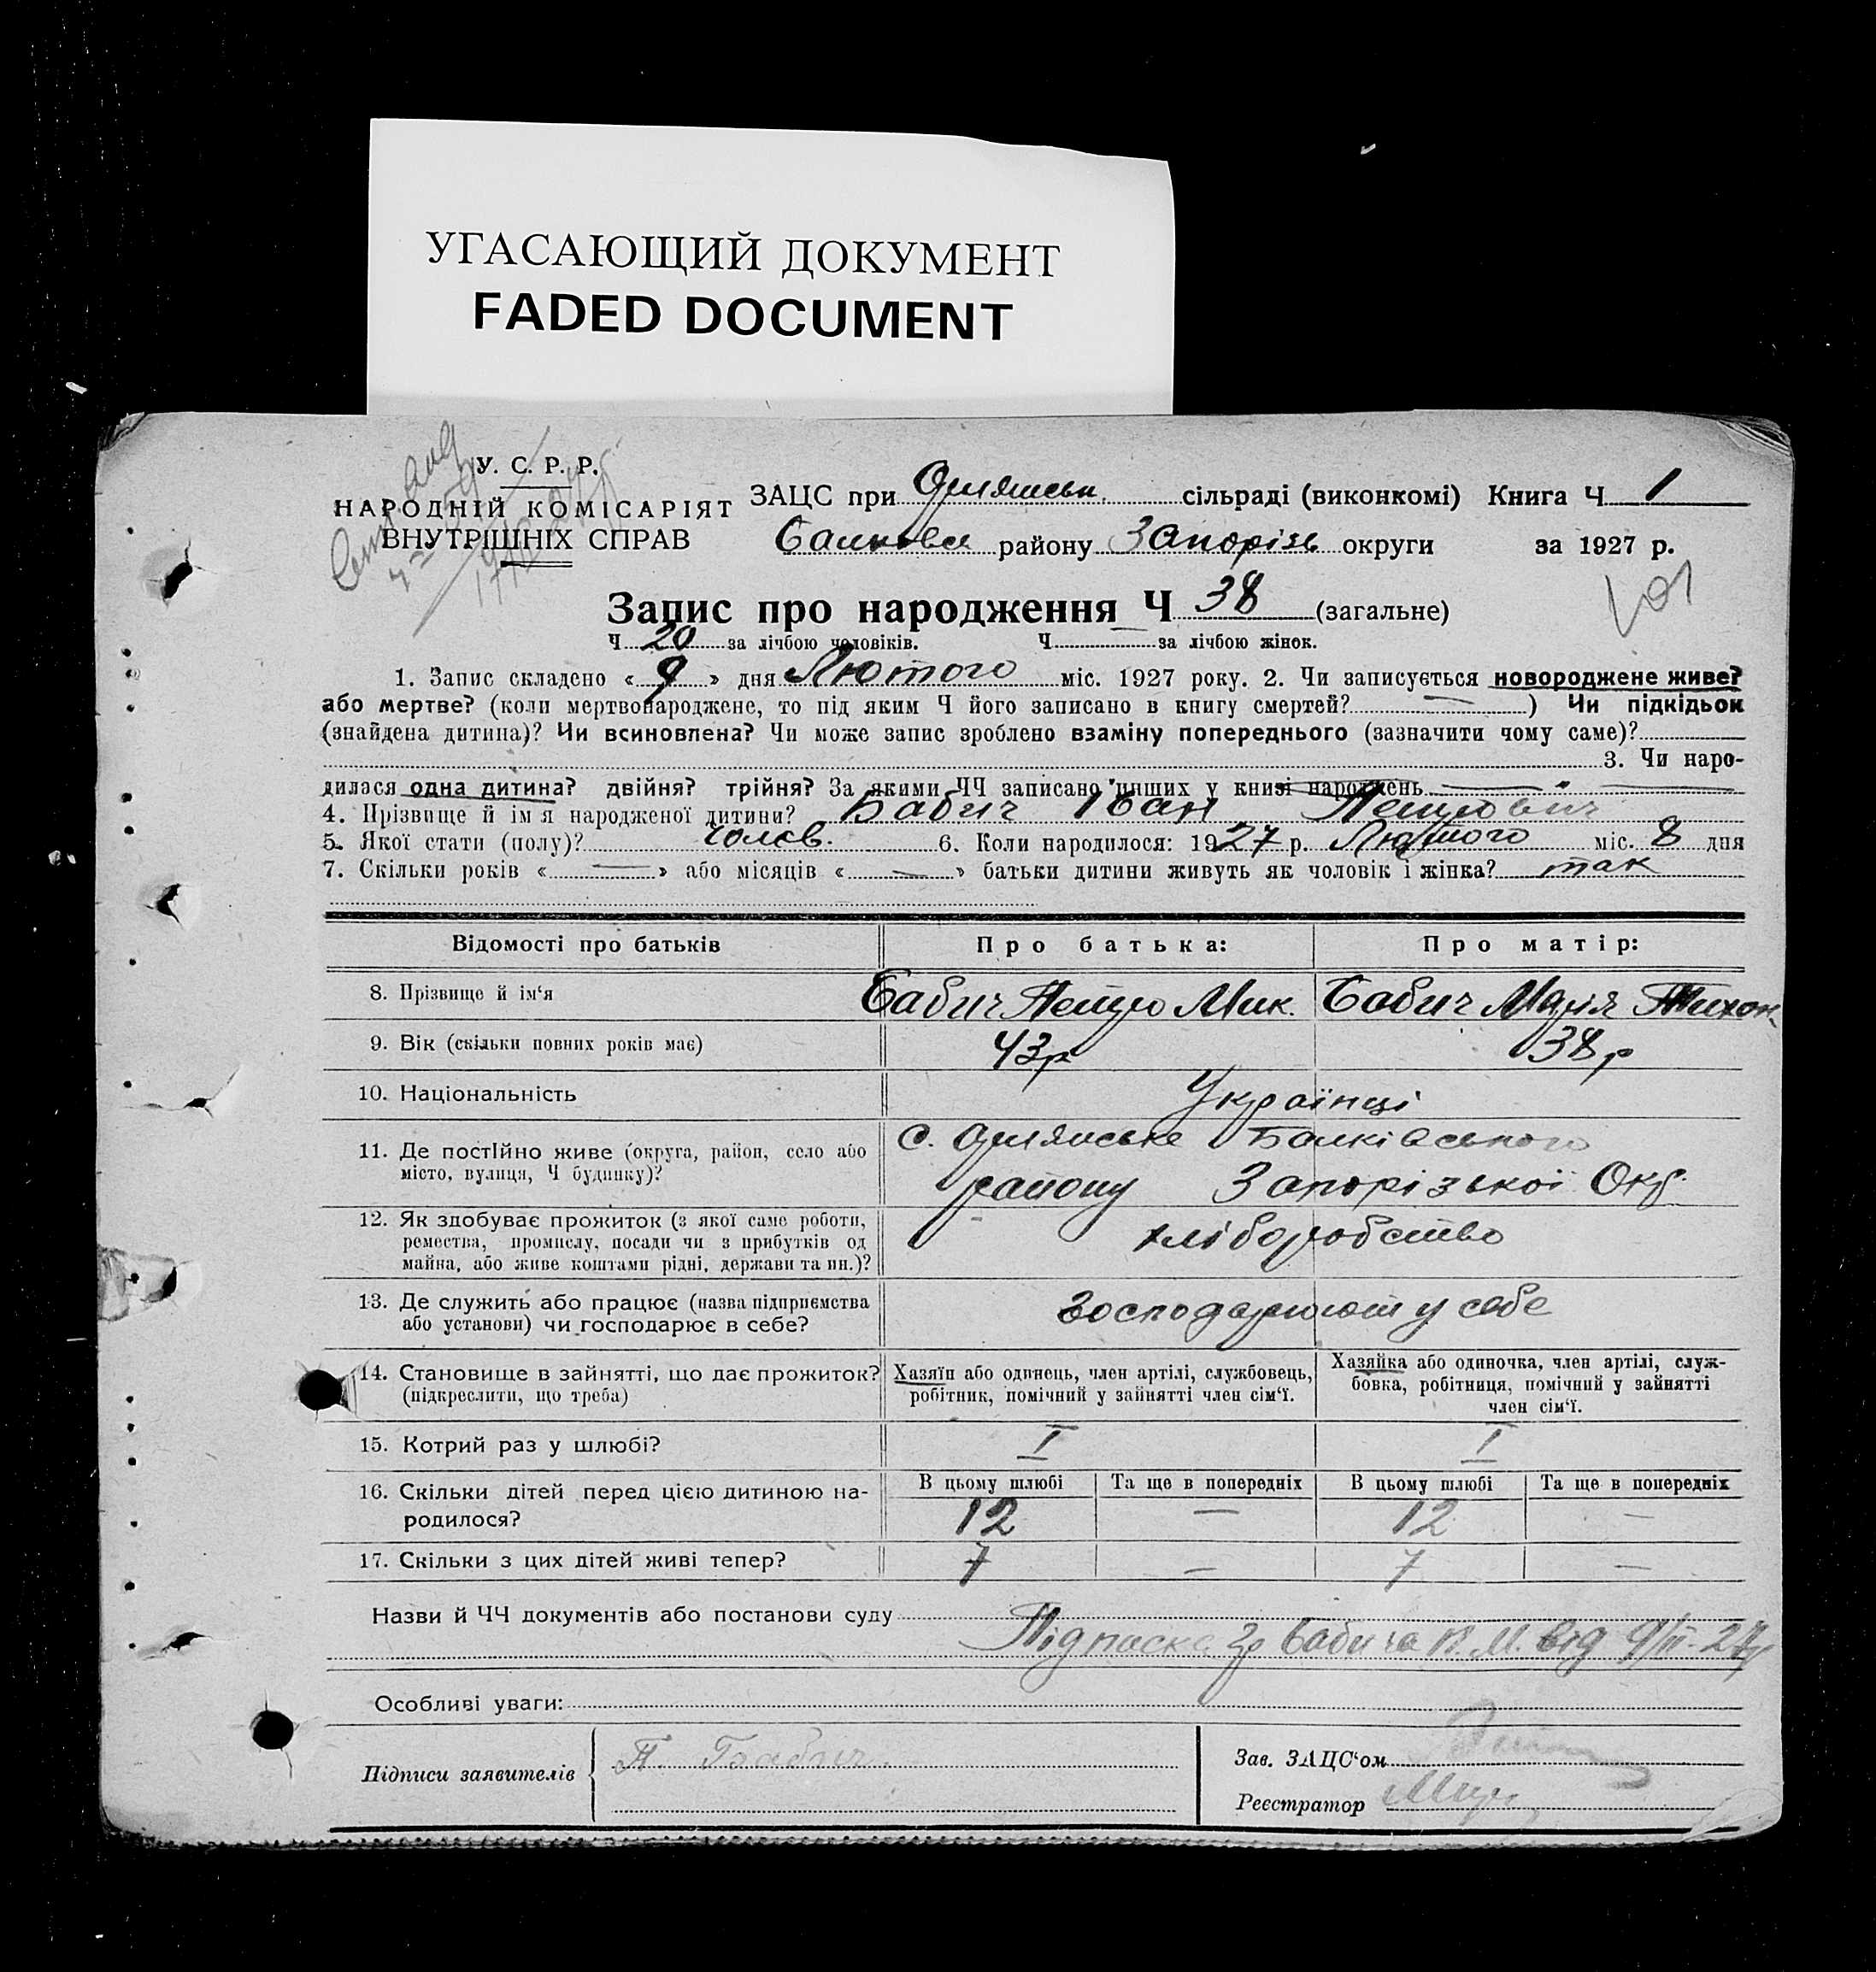 УГАСАЮЩИЙ ДОКУМЕНТ
FADED DOCUMENT
У. С. Р. Р.
НАРОДНІЙ КОМІСАРІЯТ
ВНУТРІШНІХ СПРАВ
ЗАЦС при сільраді (виконкомі) Книга Ч 1
району Запорізь округи за 1927 р.
Запис про народження Ч 38 (загальне)
Ч 20 за лічбою чоловіків. Ч — за лічбою жінок.
1. Запис складено « 9 » дня Лютого міс. 1927 року. 2. Чи записується новороджене живе?
або мертве? (коли мертвонароджене, то під яким Ч його записано в книгу смертей? — ) Чи підкідьок
(знайдена дитина)? Чи всиновлена? Чи може запис зроблено взаміну попереднього (зазначити чому саме)?
3. Чи наро-
дилася одна дитина? двійня? трійня? За якими ЧЧ записано инших у книзі народжень — " —
4. Прізвище й ім'я народженої дитини? Бабич Іван Петрович
5. Якої стати (полу)? чолов. 6. Коли народилося: 1927 р. Лютого міс. 8 дня
7. Скільки років « — » або місяців « — » батьки дитини живуть як чоловік і жінка? так
Відомості про батьків Про батька: Про матір:
8. Прізвище й ім'я Бабич Петро Мик. Бабич Марія Тихон
9. Вік (скільки повних років має) 43р 38р
10. Національність Українці
11. Де постійно живе (округа, район, село або
місто, вулиця, Ч будинку)?
с. Балківського
району Запорізької Окр.
12. Як здобуває прожиток (з якої саме роботи,
ремества, промислу, посади чи з прибутків од
майна, або живе коштами рідні, держави та ин.)?
хліборобство
13. Де служить або працює (назва підприємства
або установи) чи господарює в себе?
господарюют у себе
14. Становище в зайнятті, що дає прожиток?
(підкреслити, що треба)
Хазяїн або одинець, член артілі, службовець,
робітник, помічний у зайнятті член сім'ї.
Хазяйка або одиночка, член артілі, служ-
бовка, робітниця, помічний у зайнятті
член сім'ї.
15. Котрий раз у шлюбі? I I
16. Скільки дітей перед цією дитиною на-
родилося?
В цьому шлюбі Та ще в попередніх В цьому шлюбі Та ще в попередніх
12 — 12 —
17. Скільки з цих дітей живі тепер? 7 — 7 —
Назви й ЧЧ документів або постанови суду
Підписка гр Бабича П. М. від 9/II-27р
Особливі уваги:
Підписи заявителів П. Бабич.
Зав. ЗАЦС'ом
Реєстратор